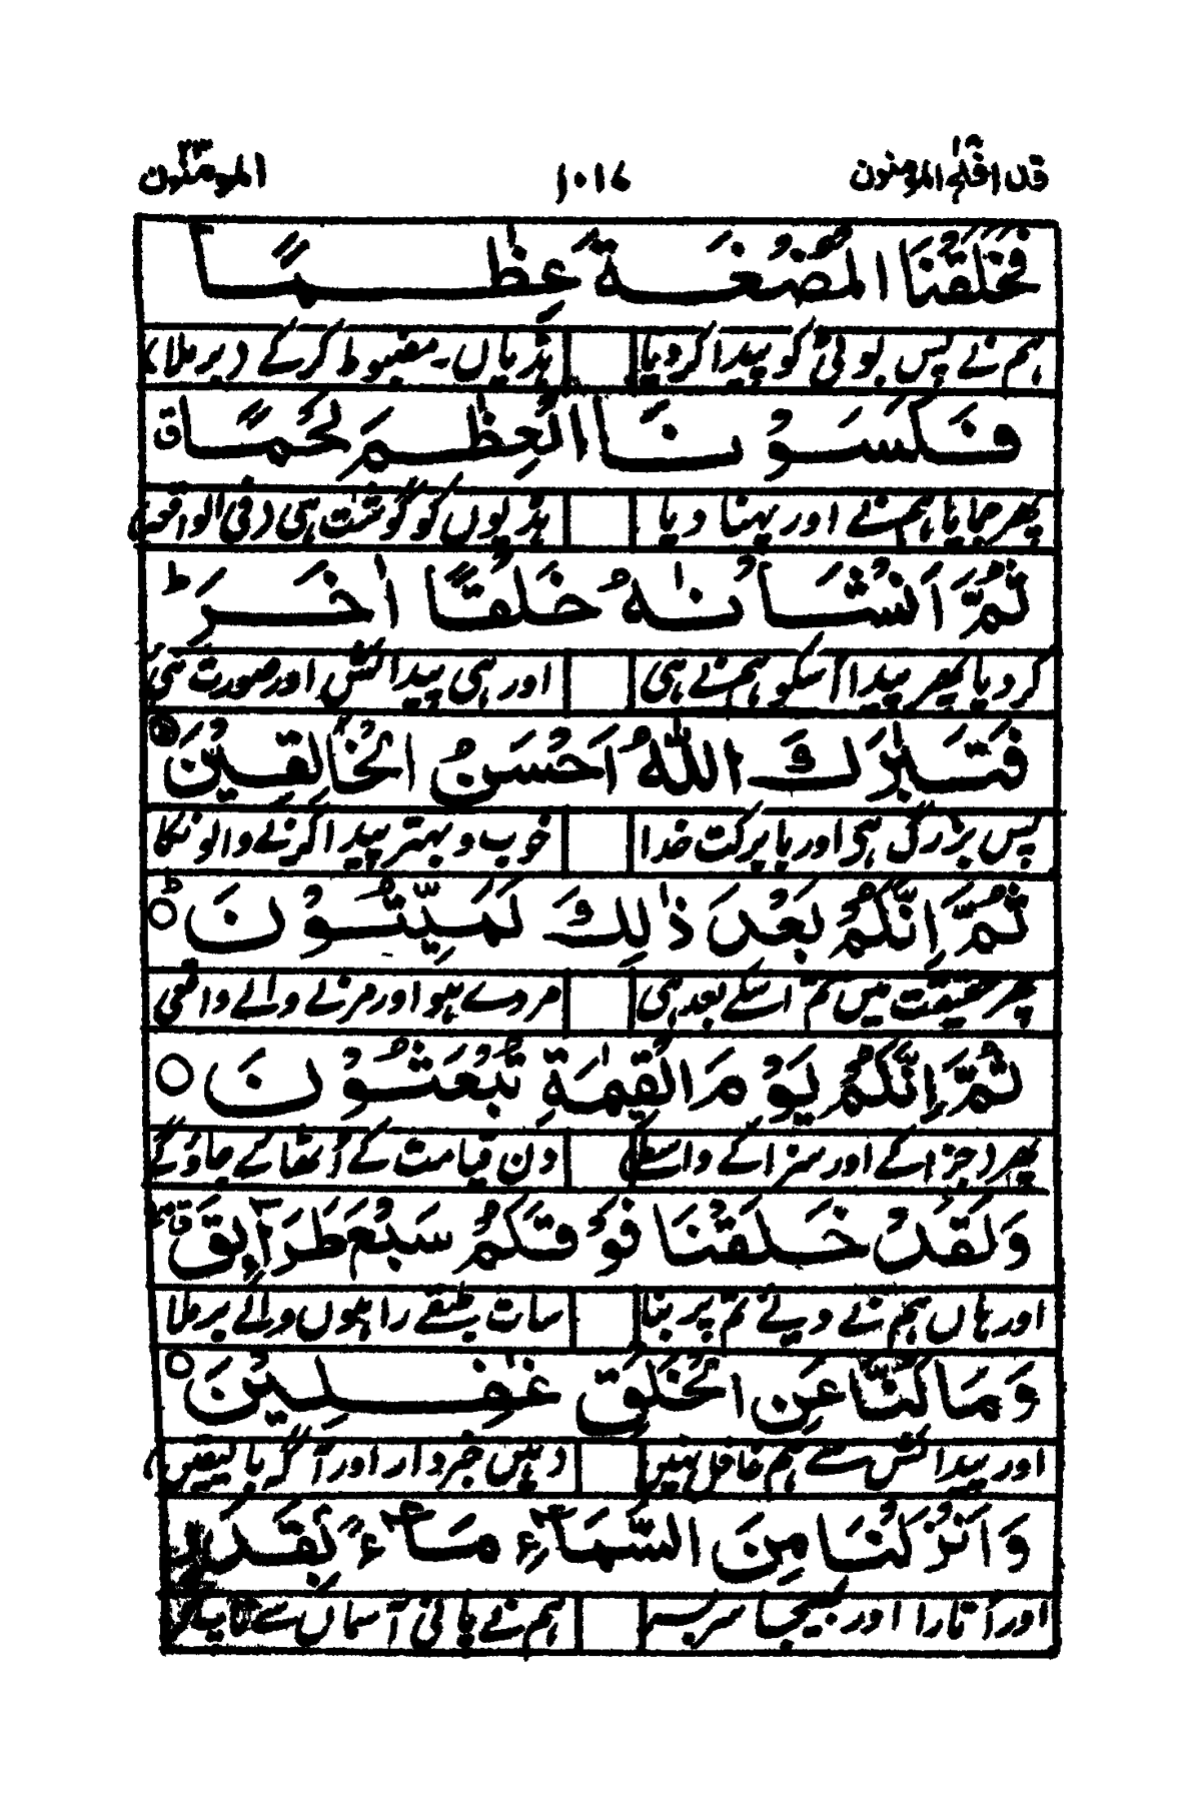 قد افلح ١٨ المؤمنون ١٠١٧ المؤمنون ٢٣
فَخَلَقْنَا الْمُضْغَةَ عِظٰمًا
ہم نے پس بوٹی کو پیدا کر دیا ہڈیاں۔ مضبوط کرکے دیر ملا
فَكَسَوْنَا الْعِظٰمَ لَحْمًا ق
پھر جمایا ہم نے اور پہنا دیا ہڈیوں کو گوشت ہی (فی الواقع)
ثُمَّ اَنْشَاْنٰهُ خَلْقًا اٰخَرَ ط
کر دیا پھر پیدا اسکو ہم نے ہی اور ہی پیدائش اور صورت ہی
فَتَبٰرَكَ اللّٰهُ اَحْسَنُ الْخَالِقِيْنَ
پس بزرگ ہی اور بابرکت خدا خوب و بہتر پیدا کرنے والونکا
ثُمَّ اِنَّكُمْ بَعْدَ ذٰلِكَ لَمَيِّتُوْنَ ط
پھر حقیقت میں تم اسکے بعد ہی مردے ہو اور مرنے والے واقعی
ثُمَّ اِنَّكُمْ يَوْمَ الْقِيٰمَةِ تُبْعَثُوْنَ
پھر (جزا کے اور سزا کے واسطے) دن قیامت کے اُٹھائے جاؤگے
وَلَقَدْ خَلَقْنَا فَوْقَكُمْ سَبْعَ طَرَآئِقَ ق
اور ہاں ہم نے دیئے تم پر بنا سات طبقے راہوں والے برملا
وَمَا كُنَّا عَنِ الْخَلْقِ غٰفِلِيْنَ
اور پیدائش سے ہم غافل نہیں (ہیں خبردار اور آگہ بالیقیں)
وَاَنْزَلْنَا مِنَ السَّمَآءِ مَآءً بِقَدَرٍ
اور اُتارا اور بھیجا سربسر ہم نے پانی آسماں سے